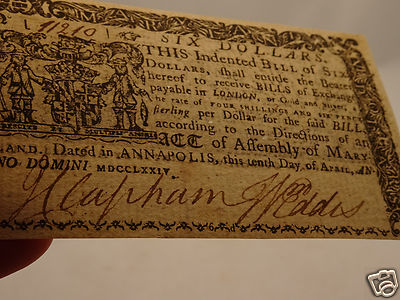 11210 SIX DOLLARS.
THIS Indented BILL of SIX
DOLLARS, shall entitle the Bearer
hereof to receive BILLS of Exchange
payable in LONDON, or Gold and Silver,
the rate of FOUR SHILLINGS and SIX PENCE
sterling per Dollar for the said BILL,
according to the Directions of an
ACT of Assembly of MARY-
LAND. Dated in ANNAPOLIS, this tenth Day of APRIL, AN-
NO DOMINI MDCCLXXIV.
J Clapham Wm Eddis
ebay